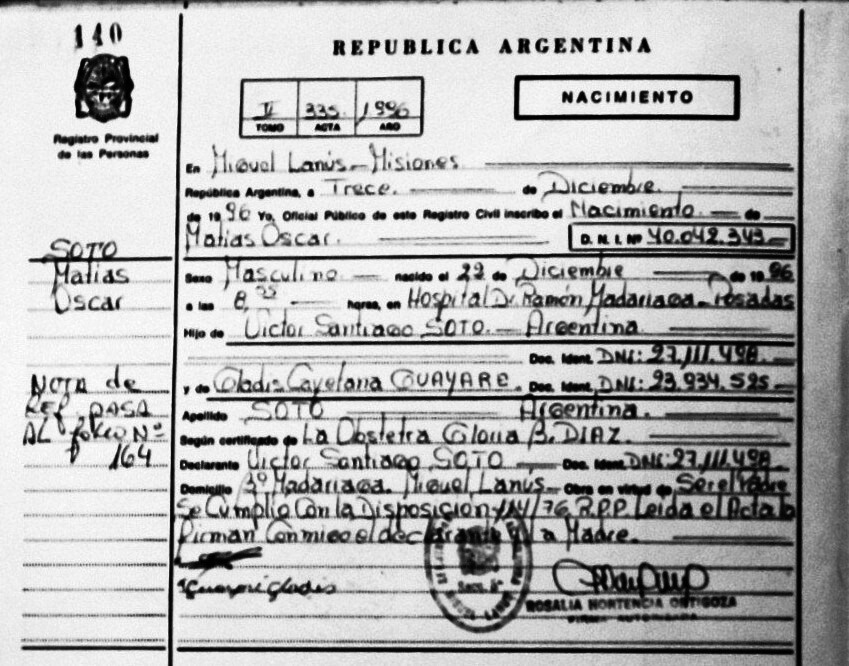 140
Registro Provincial
de las Personas
SOTO
Matias
Oscar
NOTA de
REF. PASA
AL folio Nº
164
REPUBLICA ARGENTINA
II 335. 1996
TOMO ACTA AÑO
NACIMIENTO
En Miguel Lanús - Misiones
República Argentina, a Trece. de Diciembre.
de 1996 Yo, Oficial Público de este Registro Civil inscribo el Nacimiento de
Matias Oscar. D. N. I. Nº 40.042.343
Sexo Masculino nacido el de Diciembre de 1996
a las 8, horas, en Hospital Dr. Ramón Madariaga - Posadas
Hijo de Victor Santiago SOTO. - Argentina
Doc. Ident. DNI: 27.111.498.
y de Gladis Cayetana GUAYARE. Doc. Ident. DNI: 23.934.525
Apellido SOTO Argentina.
Según certificado de La Obstetra Gloria B. DIAZ.
Declarante Victor Santiago SOTO Doc. Ident. DNI: 27.111.498
Domicilio Madariaga. Miguel Lanús - Obra en virtud de Ser el Padre
Se Cumplio Con la Disposicion 114/76 R.P.P. Leida el Acta la
Firman Conmigo el declarante y la Madre.
Gladis
ROSALIA HORTENCIA ORTIGOZA
FIRMA AUTORIZADA